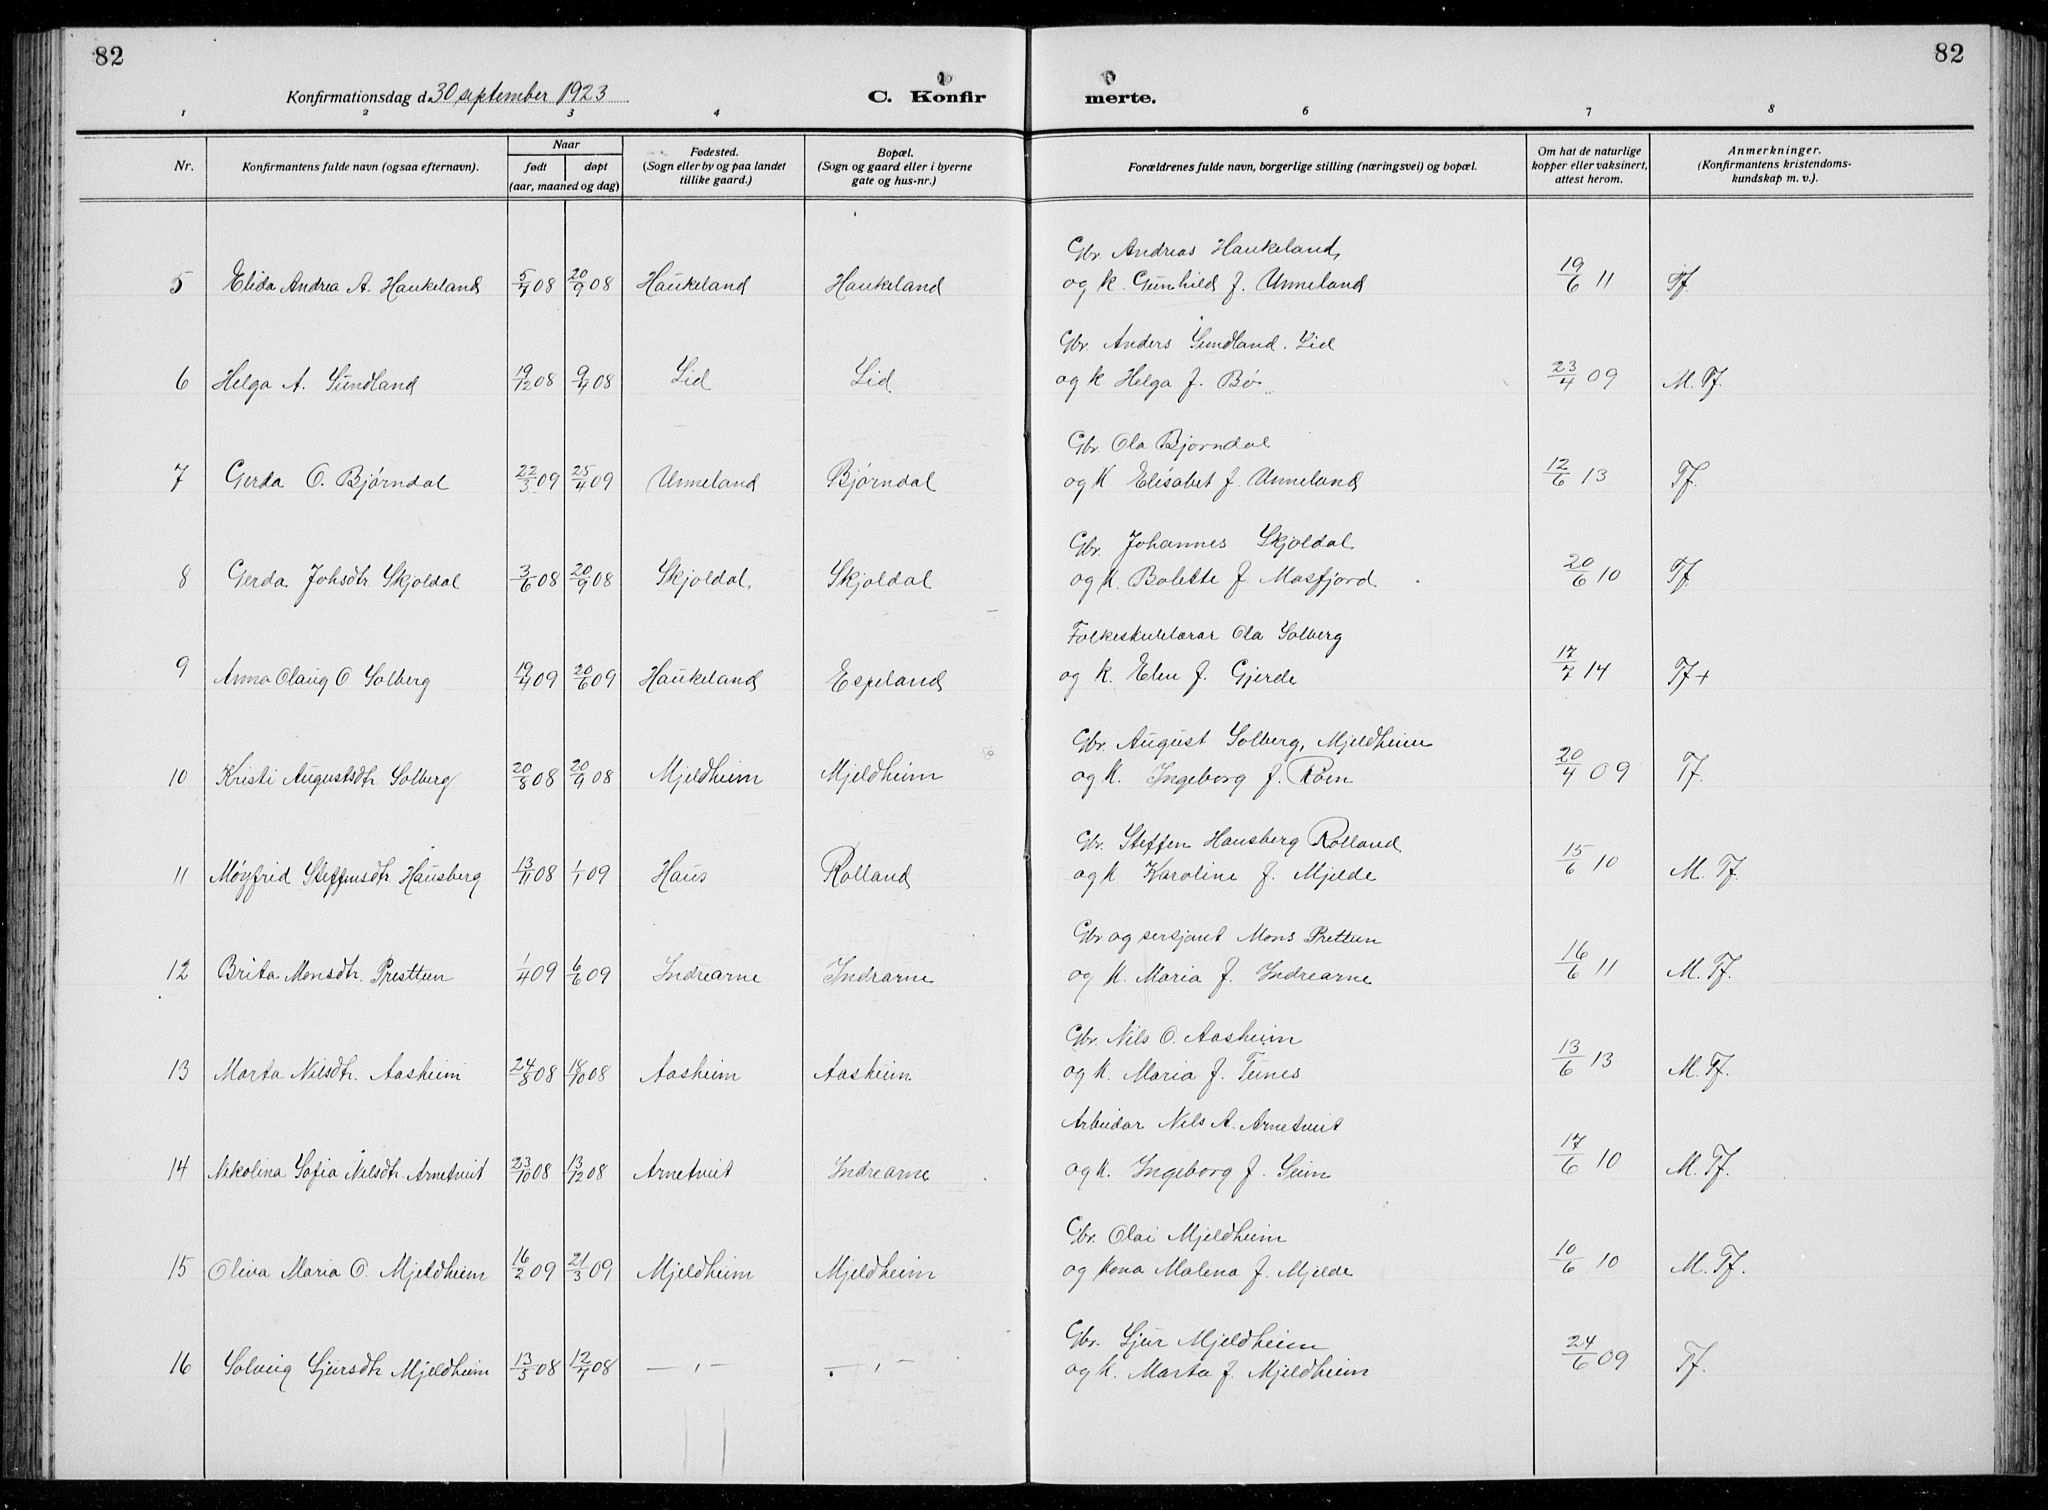 82
82
Konfirmationsdag d. 30 september 1923
C. Konfir
merte.
1 2 3 4 5 6 7 8
Nr.
Konfirmantens fulde navn (ogsaa efternavn).
Naar
født døpt
(aar, maaned og dag)
Fødested.
(Sogn eller by og paa landet
tillike gaard.)
Bopæl.
(Sogn og gaard eller i byerne
gate og hus-nr.)
Forældrenes fulde navn, borgerlige stilling (næringsvei) og bopæl.
Om hat de naturlige
kopper eller vaksinert,
attest herom.
Anmerkninger.
(Konfirmantens kristendoms-
kundskap m. v.).
Gbr. Andreas Haukeland,
5 Elida Andrea A. Haukeland 5/7 08 20/9 08 Haukeland Haukeland og k. Gunhild f. Unneland 19/6 11 Tf.
Gbr. Anders Sundland. Lid
6 Helga A. Sundland 19/12 08 9/4 08 Lid Lid og k Helga f. Bø 23/4 09 M. Tf.
Gbr Ola Bjørndal
7 Gerda O. Bjørndal 22/3 09 25/4 09 Unneland Bjørndal og k Elisabet f. Unneland 12/6 13 Tf.
Gbr. Johannes Skjoldal
8 Gerda Johsdtr Skjoldal 3/6 08 20/9 08 Skjoldal Skjoldal og k. Bolette f Masfjord 20/6 10 Tf
Folkeskulelærar Ola Solberg
9 Anna Olaug O Solberg 19/4 09 20/6 09 Haukeland Espeland og k. Elen f. Gjerde 17/7 14 Tf +
Gbr. August Solberg, Mjeldheim
10 Kristi Augustsdtr Solberg 20/8 08 20/9 08 Mjeldheim Mjeldheim og k. Ingeborg f. Røen 20/4 09 Tf.
Gbr. Steffen Hausberg Rolland
11 Møyfrid Steffensdtr Hausberg 13/11 08 1/1 09 Haus Rolland og k Karoline f. Mjelde 15/6 10 M. Tf.
Gbr og sersjant Mons Prettun
12 Brita Monsdtr. Presttun 1/4 09 6/6 09 Indrearne Indrarne og k. Maria f. Indrearne 16/6 11 M. Tf.
Gbr. Nils O. Aasheim
13 Marta Nilsdtr. Aasheim 24/8 08 18/10 08 Aasheim Aasheim og k. Maria f. Tunes 13/6 13 M. Tf.
Arbeidar Nils A. Arnetveit
14 Nikolina Sofia Nilsdtr. Arnetveit 23/10 08 13/12 08 Arnetveit Indrearne og k. Ingeborg f. Seim 17/6 10 M. Tf.
Gbr. Olai Mjeldheim
15 Oliva Maria O. Mjeldheim 16/2 09 21/3 09 Mjeldheim Mjeldheim og kona Malena f. Mjelde 10/6 10 M. Tf.
Gbr. Sjur Mjeldheim
16 Solveig Sjursdtr Mjeldheim 13/3 08 12/4 08 — " — — " — og k. Marta f. Mjeldheim 24/6 09 Tf.